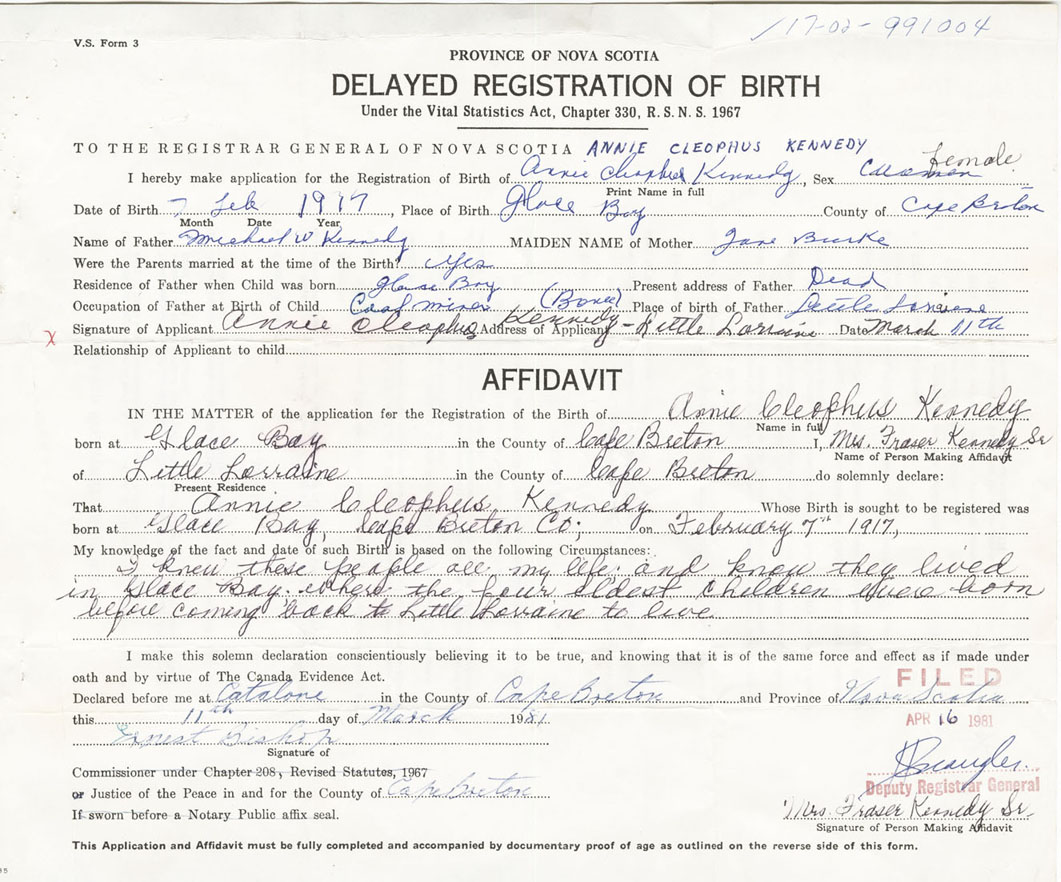 17-02-991004
V.S. Form 3
PROVINCE OF NOVA SCOTIA
DELAYED REGISTRATION OF BIRTH
Under the Vital Statistics Act, Chapter 330, R.S.N.S. 1967
TO THE REGISTRAR GENERAL OF NOVA SCOTIA ANNIE CLEOPHUS KENNEDY
Female
I hereby make application for the Registration of Birth of Annie Cleophus Kennedy, Sex
Print Name in full
Date of Birth 7 Feb 1917, Place of Birth Glace Bay County of Cape Breton
Month Date Year
Name of Father Michael W Kennedy MAIDEN NAME of Mother Jane Burke
Were the Parents married at the time of the Birth? Yes
Residence of Father when Child was born Glace Bay Present address of Father Dead
Occupation of Father at Birth of Child Coal miner Place of birth of Father Little Lorraine
Signature of Applicant Annie Cleophus Kennedy Address of Applicant - Little Lorraine Date March 11th
X
Relationship of Applicant to child
AFFIDAVIT
IN THE MATTER of the application for the Registration of the Birth of Annie Cleophus Kennedy
Name in full
born at Glace Bay in the County of Cape Breton I, Mrs. Fraser Kennedy Sr
Name of Person Making Affidavit
of Little Lorraine in the County of Cape Breton do solemnly declare:
Present Residence
That Annie Cleophus Kennedy Whose Birth is sought to be registered was
born at Glace Bay, Cape Breton Co; on February 7th 1917,
My knowledge of the fact and date of such Birth is based on the following Circumstances:
I knew these people all my life and know they lived
in Glace Bay where the four eldest children were born
before coming back to Little Lorraine to live
I make this solemn declaration conscientiously believing it to be true, and knowing that it is of the same force and effect as if made under
oath and by virtue of The Canada Evidence Act.
FILED
Declared before me at Catalone in the County of Cape Breton and Province of Nova Scotia
this 11th day of March 1981
APR 16 1981
Ernest Bishop
Signature of
Commissioner under Chapter 208, Revised Statutes, 1967
or Justice of the Peace in and for the County of Cape Breton
Deputy Registrar General
If sworn before a Notary Public affix seal.
Mrs. Fraser Kennedy Sr.
Signature of Person Making Affidavit
This Application and Affidavit must be fully completed and accompanied by documentary proof of age as outlined on the reverse side of this form.